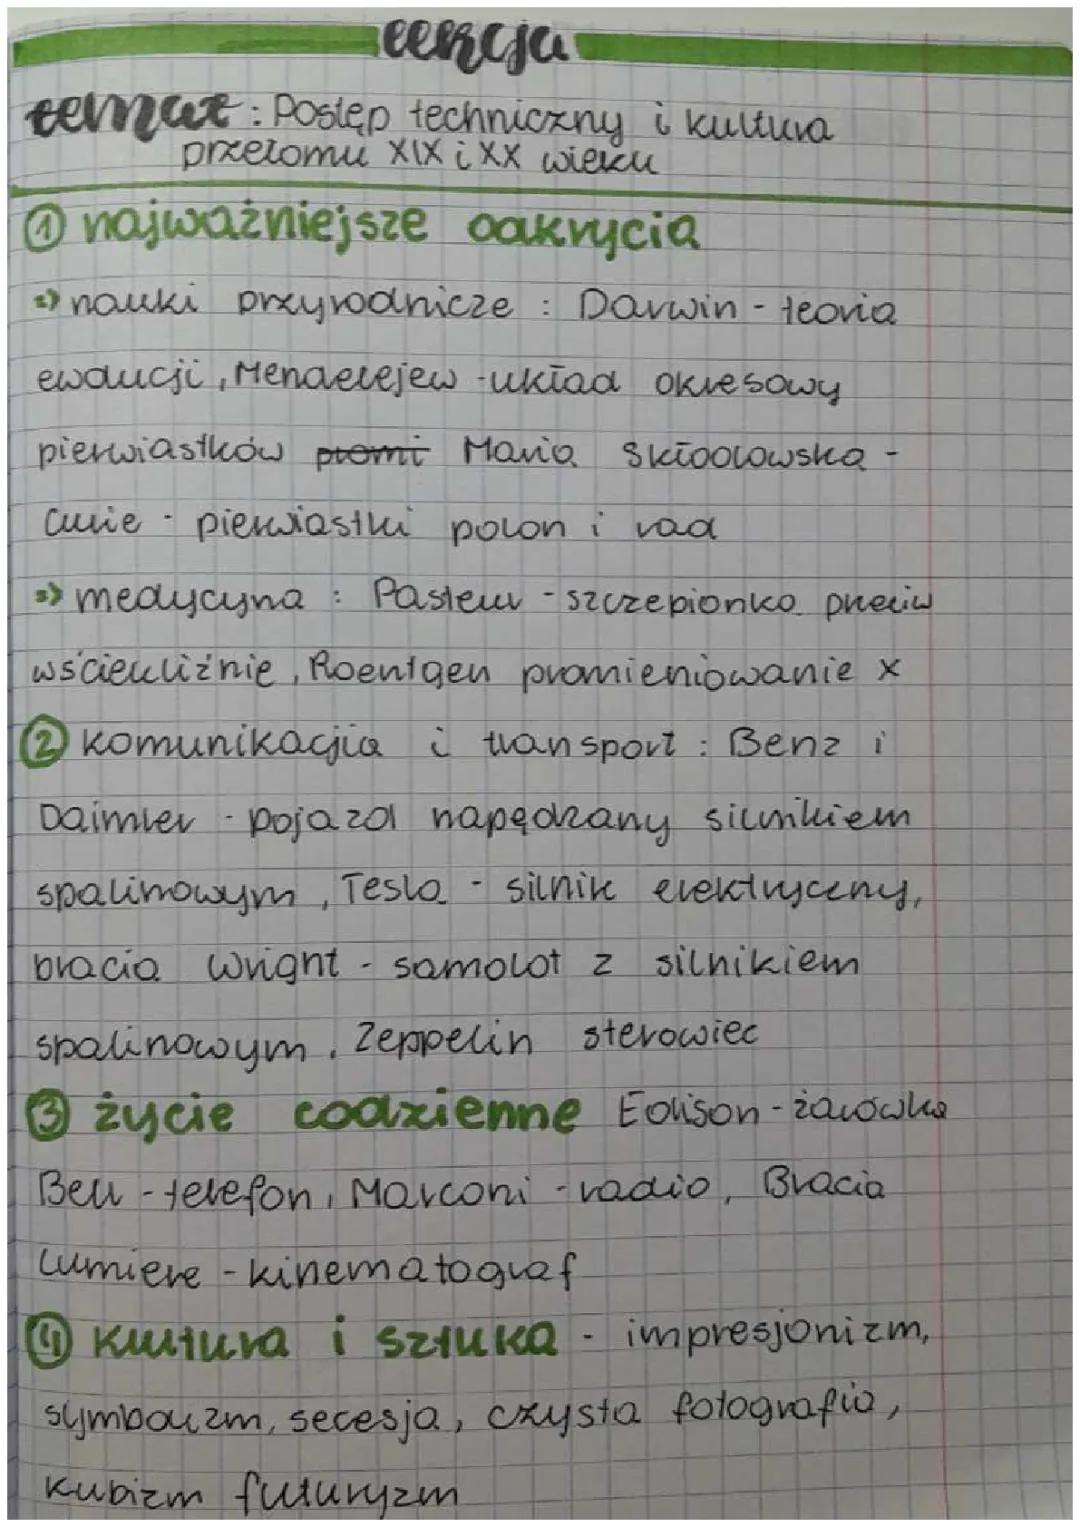 lekcja
temat: Postęp techniczny i kultura
przełomu XIX i XX wieku
① najważniejsze odkrycia
=> nauki przyrodnicze : Darwin - teoria
ewolucji, Mendelejew - układ okresowy
pierwiastków promi Maria Skłodowska -
Curie - pierwiastki polon i rad
=> medycyna : Pasteur - szczepionka przeciw
wściekliźnie, Roentgen promieniowanie x
② komunikacjia i transport : Benz i
Daimler - pojazd napędzany silnikiem
spalinowym, Tesla - silnik elektryczny,
bracia Wright - samolot z silnikiem
spalinowym, Zeppelin sterowiec
③ życie codzienne Edison - żarówka
Bell - telefon, Marconi - radio, Bracia
Lumiere - kinematograf
④ kultura i sztuka - impresjonizm,
symbolizm, secesja, czysta fotografia,
kubizm futuryzm